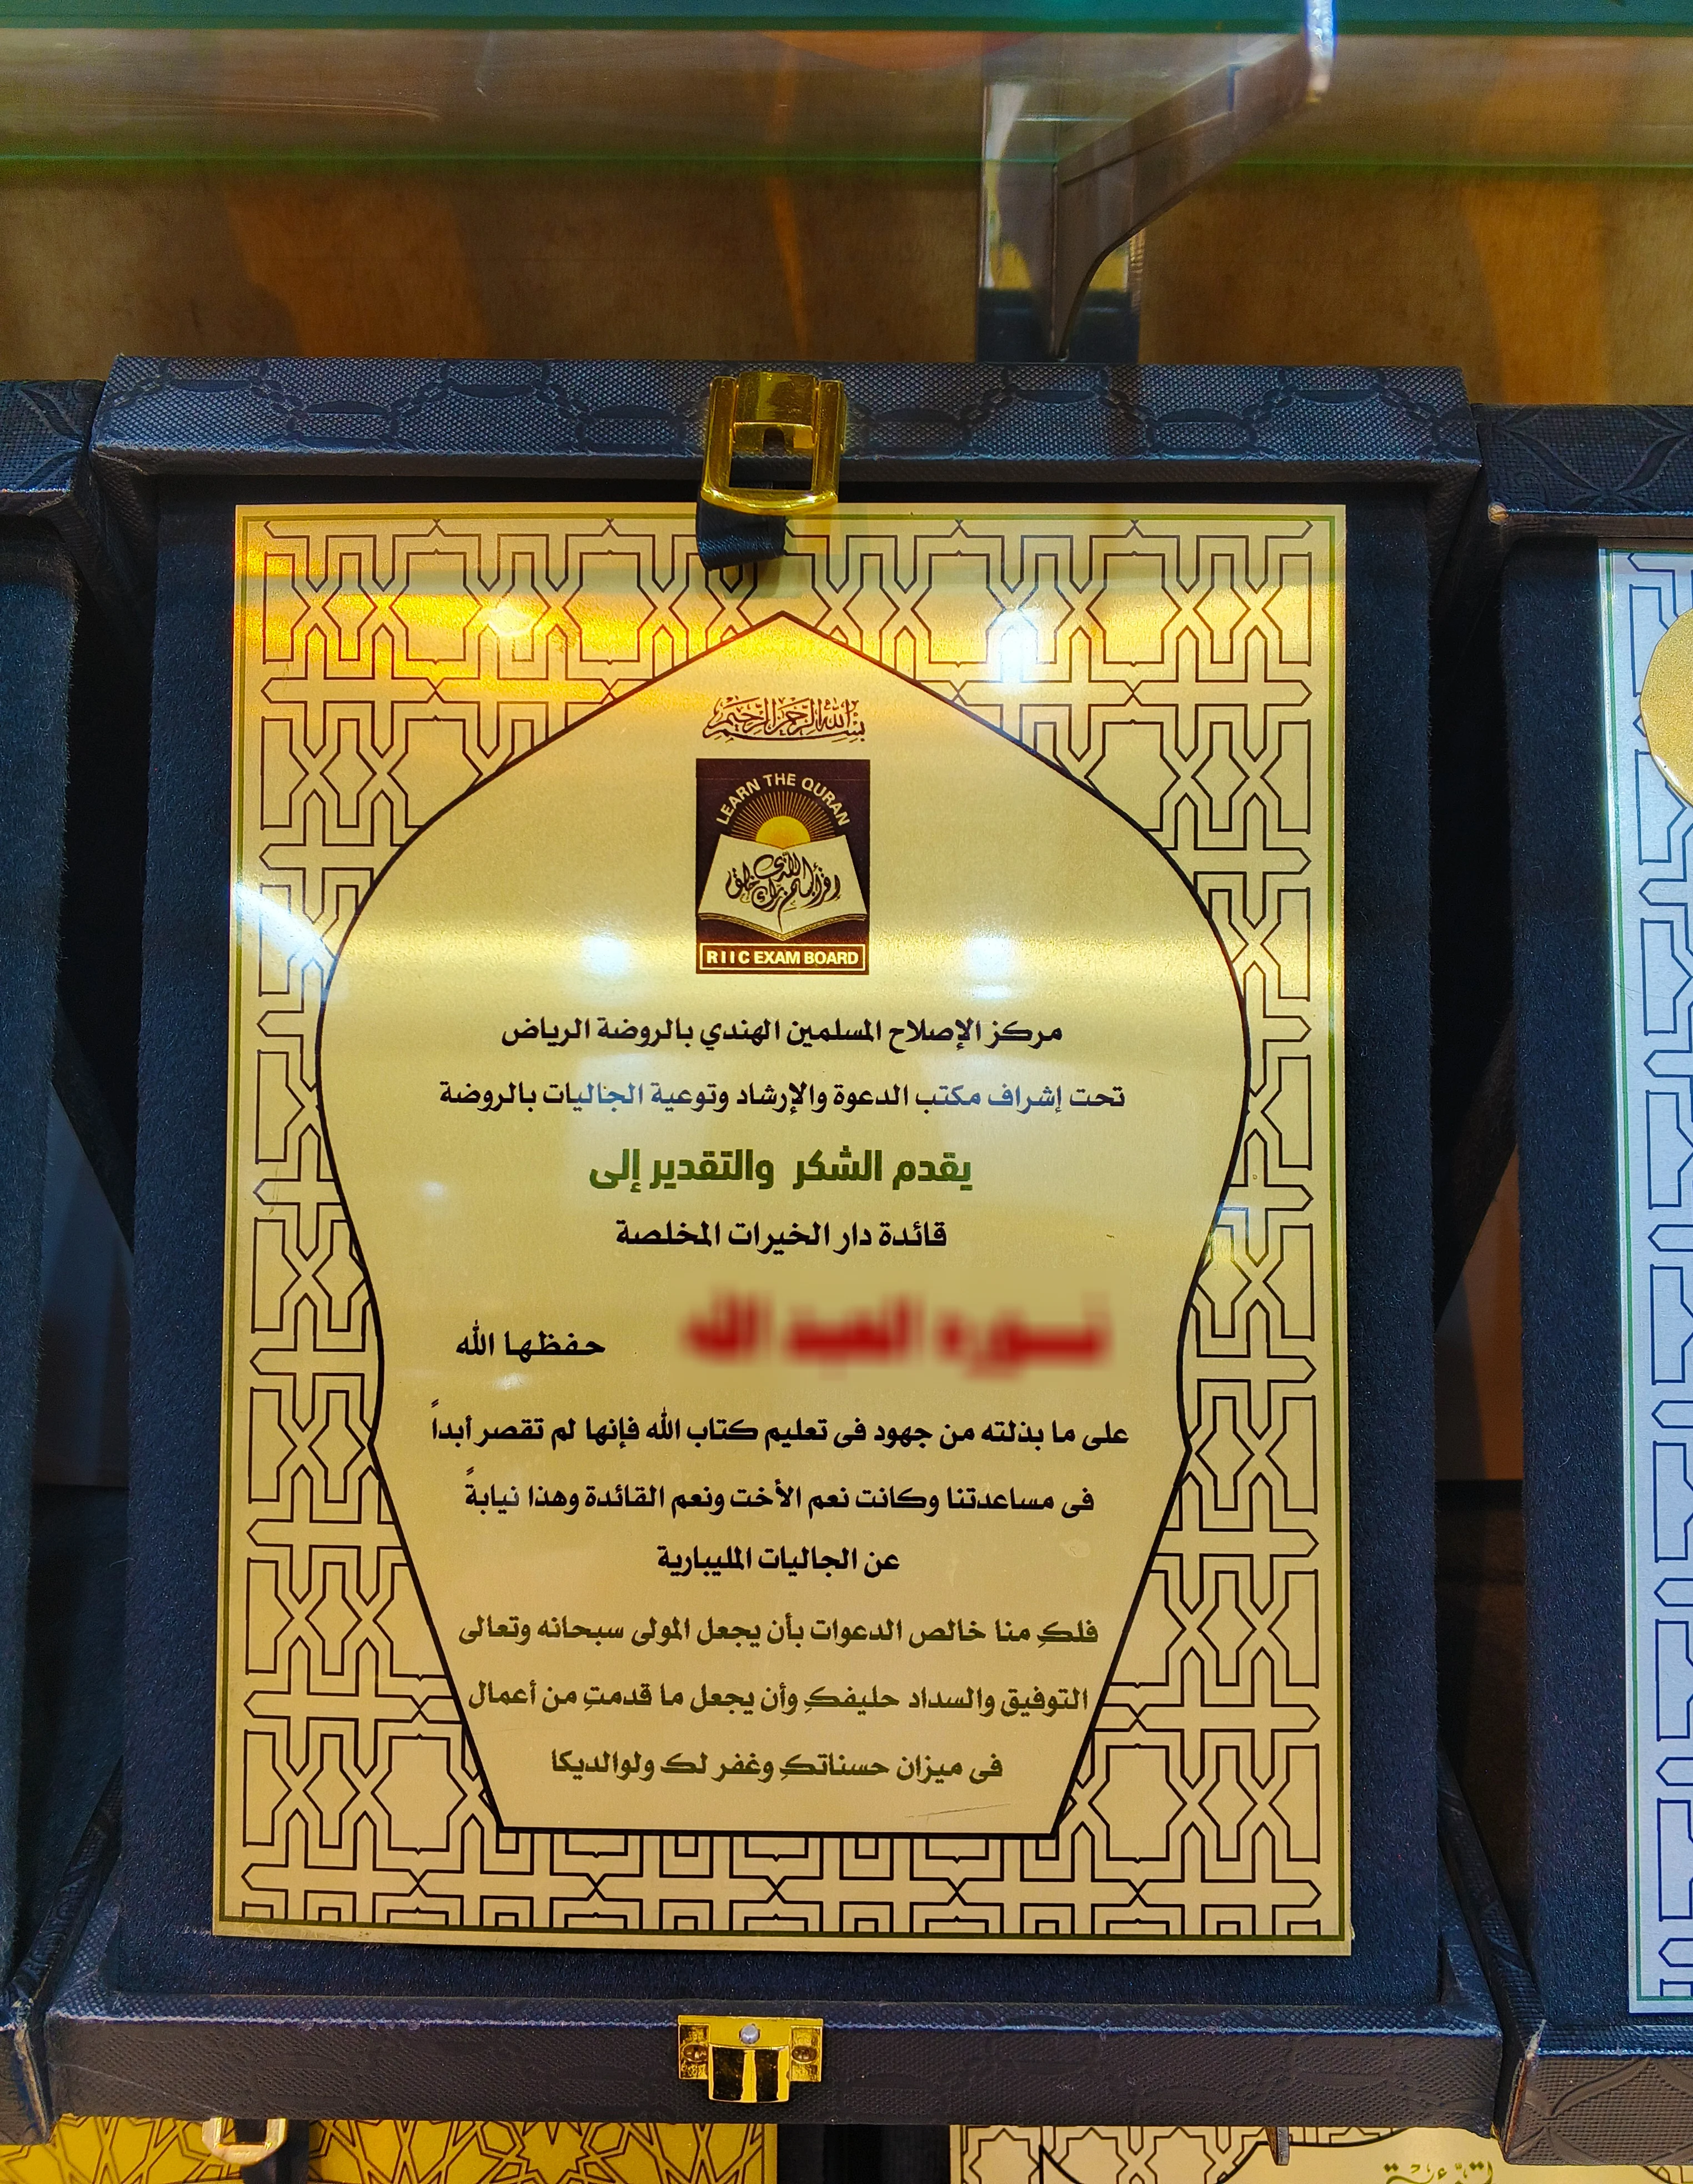 بسم الله الرحمن الرحيم
LEARN THE QURAN
اقرأ باسم ربك الذي خلق
RIIC EXAM BOARD
مركز الإصلاح المسلمين الهندي بالروضة الرياض
تحت إشراف مكتب الدعوة والإرشاد وتوعية الجاليات بالروضة
يقدم الشكر والتقدير إلى
قائدة دار الخيرات المخلصة
حفظها الله
على ما بذلته من جهود فى تعليم كتاب الله فإنها لم تقصر أبداً
فى مساعدتنا وكانت نعم الأخت ونعم القائدة وهذا نيابةً
عن الجاليات المليبارية
فلكِ منا خالص الدعوات بأن يجعل المولى سبحانه وتعالى
التوفيق والسداد حليفكِ وأن يجعل ما قدمتِ من أعمال
فى ميزان حسناتكِ وغفر لك ولوالديكا